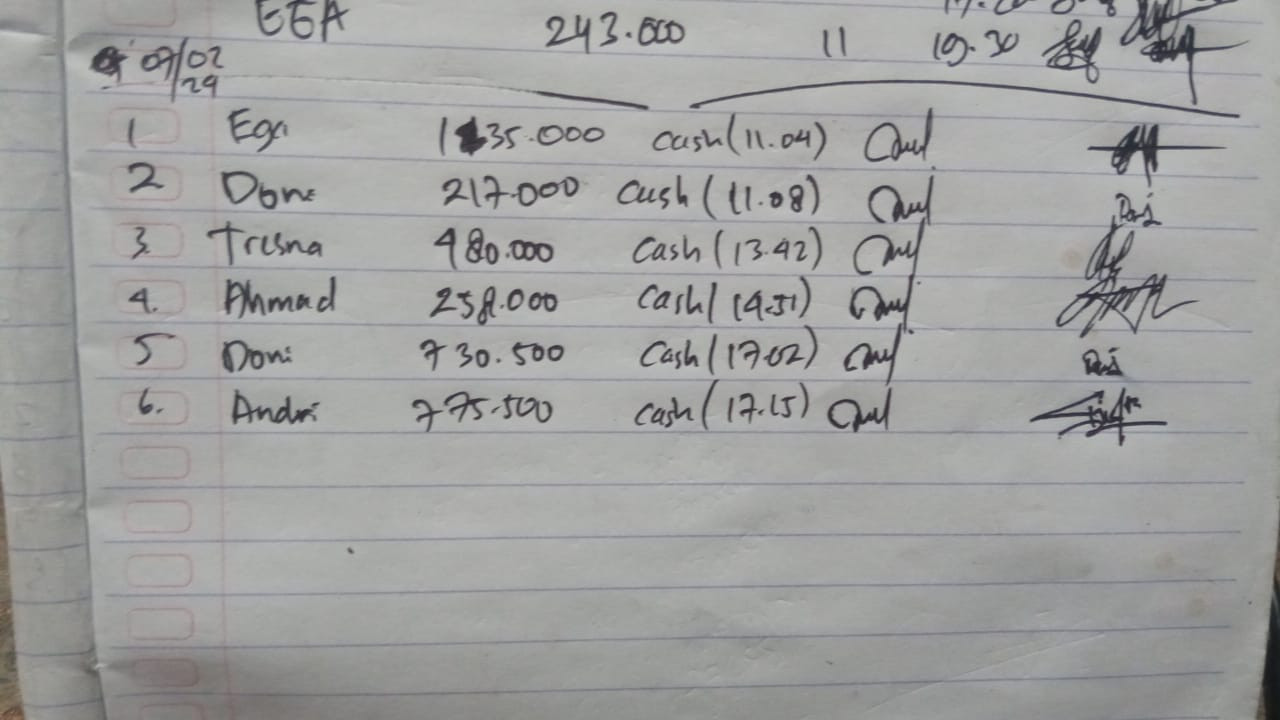 EGA 243.000 11 19.30
07/02
/29
1 Ega 135.000 cash (11.04)
2 Doni 217.000 Cash (11.08)
3. Tresna 480.000 Cash (13.42)
4. Ahmad 258.000 Cash (14.51)
5 Doni 730.500 Cash (17.02)
6. Andri 775.500 cash (17.15)